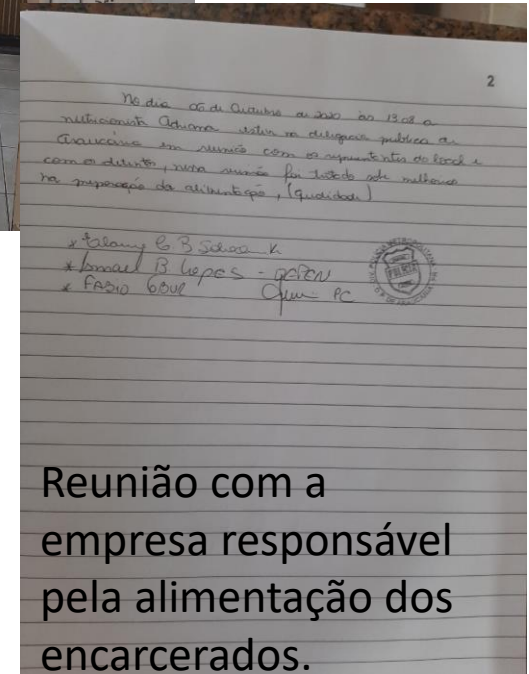 2
No dia 05 de Outubro de 2020 às 13:08 a
nutricionista Adriana esteve na delegacia publica de
Araucária em reunião com os representantes do local e
com o detento, nesta reunião foi tratado sobre melhorias
na preparação da alimentação, (qualidade)
*
* Ismael B Lopes - DEPEN
* FABIO PC
Reunião com a
empresa responsável
pela alimentação dos
encarcerados.